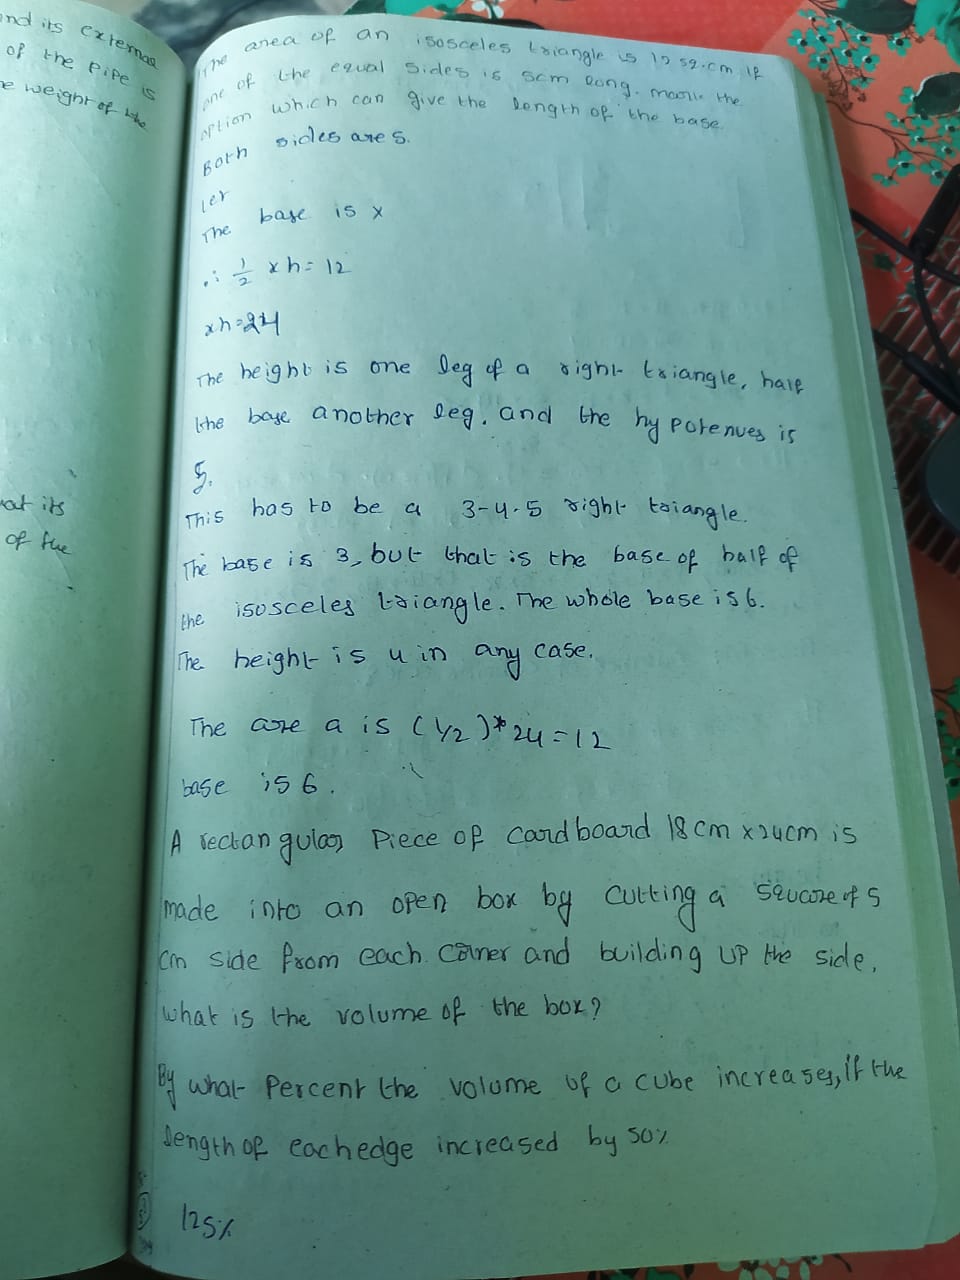 and its external
of the pipe is
e weight of the
at its
of the
The area of an isosceles triangle is 12 sq.cm. If
one of the equal sides is 5cm long. mark the
option which can give the length of the base.
Both sides are 5.
let
The base is x
∴ 1/2 xh = 12
xh = 24
The height is one leg of a right triangle, half
the base another leg. and the hypotenues is
5.
This has to be a 3-4-5 right triangle.
The base is 3, but that is the base of half of
the isosceles triangle. The whole base is 6.
The height is 4 in any case.
The area is (1/2)*24=12
base is 6.
A rectangular Piece of cardboard 18cm x 24cm is
made into an open box by cutting a square of 5
cm side from each corner and building up the side,
what is the volume of the box?
By what Percent the volume of a cube increases, if the
length of each edge increased by 50%
125%